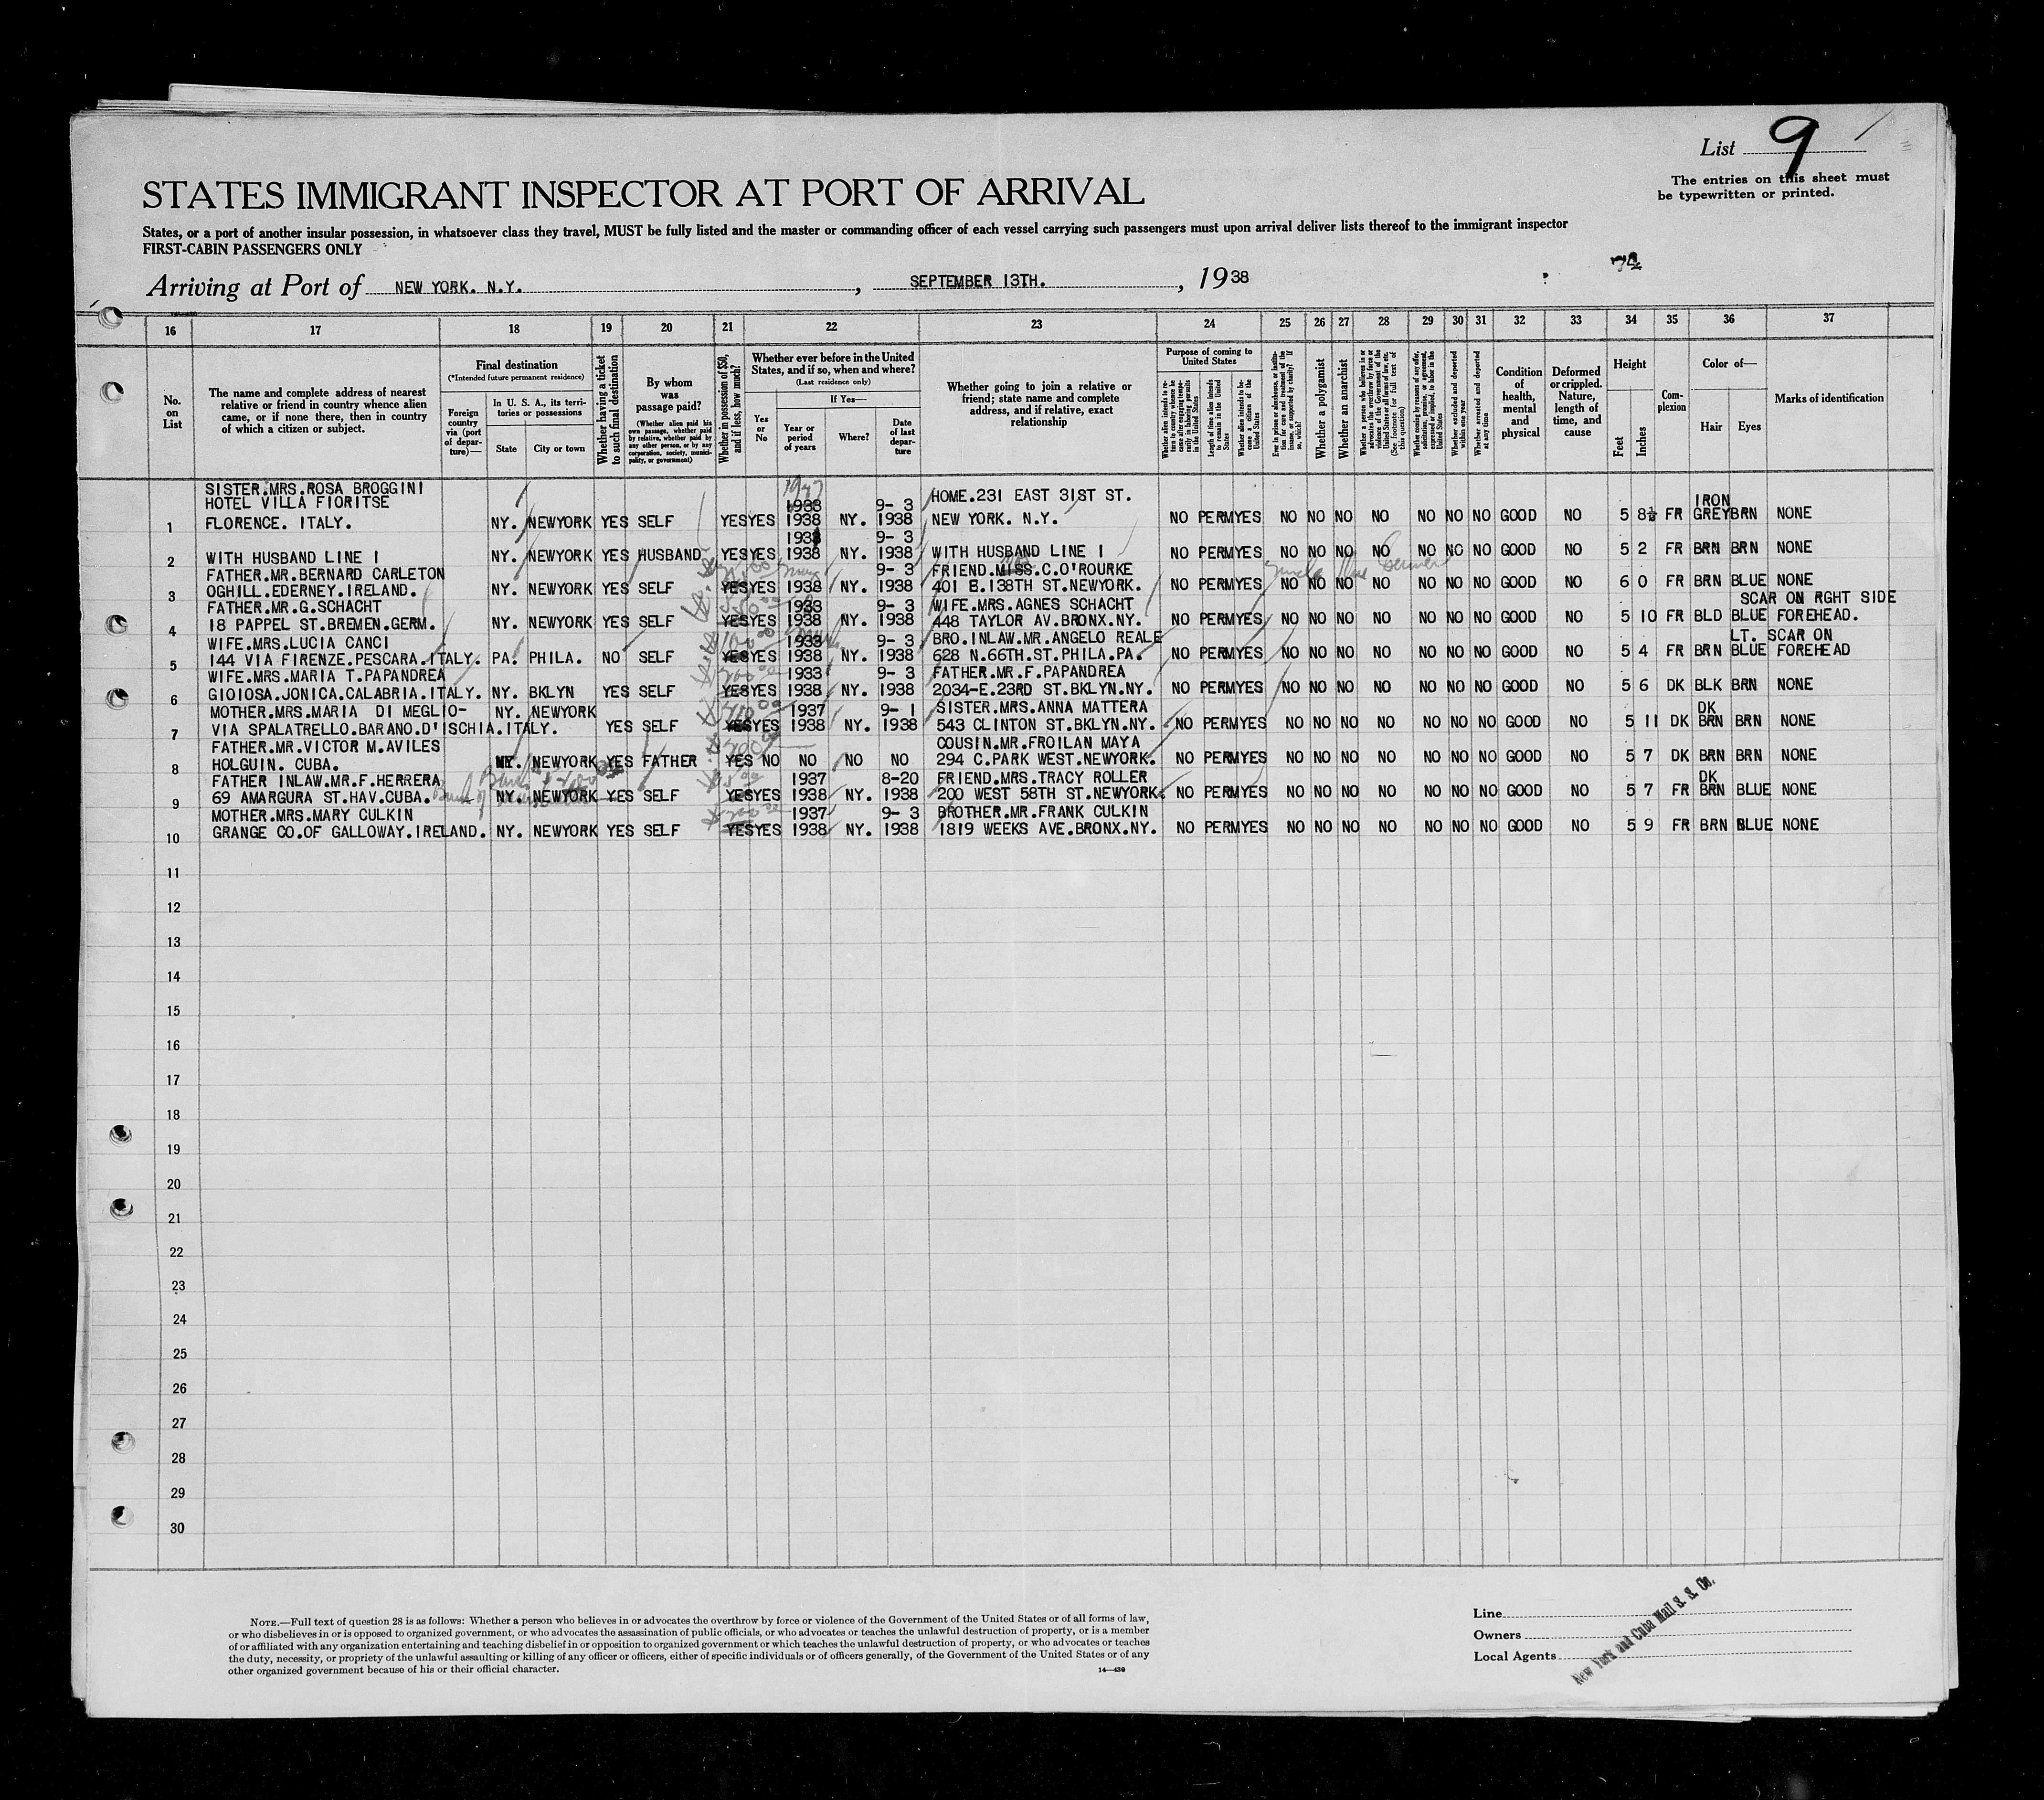 List 9
The entries on this sheet must
be typewritten or printed.
STATES IMMIGRANT INSPECTOR AT PORT OF ARRIVAL
States, or a port of another insular possession, in whatsoever class they travel, MUST be fully listed and the master or commanding officer of each vessel carrying such passengers must upon arrival deliver lists thereof to the immigrant inspector
FIRST-CABIN PASSENGERS ONLY
Arriving at Port of NEW YORK. N.Y. , SEPTEMBER 13TH. , 1938
16 17 18 19 20 21 22 23 24 25 26 27 28 29 30 31 32 33 34 35 36 37
No. on List
The name and complete address of nearest relative or friend in country whence alien came, or if none there, then in country of which a citizen or subject.
Final destination
(*Intended future permanent residence)
Foreign country via (port of departure)—
In U. S. A., its territories or possessions
State City or town
Whether having a ticket to such final destination
By whom was passage paid?
(Whether alien paid his own passage, whether paid by relative, whether paid by any other person, or by any corporation, society, municipality, or government)
Whether in possession of $50, and if less, how much?
Whether ever before in the United States, and if so, when and where?
(Last residence only)
Yes or No
If Yes—
Year or period of years
Where?
Date of last departure
Whether going to join a relative or friend; state name and complete address, and if relative, exact relationship
Purpose of coming to United States
Length of time alien intends to remain in the United States
Whether alien intends to become a citizen of the United States
Whether a polygamist
Whether an anarchist
Whether excluded and deported within one year
Whether arrested and deported at any time
Condition of health, mental and physical
Deformed or crippled. Nature, length of time, and cause
Height
Feet Inches
Complexion
Color of—
Hair Eyes
Marks of identification
SISTER.MRS.ROSA BROGGINI
HOTEL VILLA FIORITSE 1933 9- 3 HOME.231 EAST 31ST ST. IRON
1 FLORENCE. ITALY. NY. NEWYORK YES SELF YES YES 1938 NY. 1938 NEW YORK. N.Y. NO PERM YES NO NO NO NO NO NO NO GOOD NO 5 8½ FR GREY BRN NONE
1933 9- 3
2 WITH HUSBAND LINE 1 NY. NEWYORK YES HUSBAND YES YES 1938 NY. 1938 WITH HUSBAND LINE 1 NO PERM YES NO NO NO NO NO NO NO GOOD NO 5 2 FR BRN BRN NONE
FATHER.MR.BERNARD CARLETON 9- 3 FRIEND.MISS.C.O'ROURKE
3 OGHILL.EDERNEY.IRELAND. NY. NEWYORK YES SELF YES YES 1938 NY. 1938 401 E.138TH ST.NEWYORK. NO PERM YES NO NO NO NO NO NO NO GOOD NO 6 0 FR BRN BLUE NONE
FATHER.MR.G.SCHACHT 1933 9- 3 WIFE.MRS.AGNES SCHACHT SCAR ON RGHT SIDE
4 18 PAPPEL ST.BREMEN.GERM. NY. NEWYORK YES SELF YES YES 1938 NY. 1938 448 TAYLOR AV.BRONX.NY. NO PERM YES NO NO NO NO NO NO NO GOOD NO 5 10 FR BLD BLUE FOREHEAD.
WIFE.MRS.LUCIA CANCI 1933 9- 3 BRO.INLAW.MR.ANGELO REALE LT. SCAR ON
5 144 VIA FIRENZE.PESCARA.ITALY. PA. PHILA. NO SELF YES YES 1938 NY. 1938 628 N.66TH.ST.PHILA.PA. NO PERM YES NO NO NO NO NO NO NO GOOD NO 5 4 FR BRN BLUE FOREHEAD
WIFE.MRS.MARIA T.PAPANDREA 1933 9- 3 FATHER.MR.F.PAPANDREA
6 GIOIOSA.JONICA.CALABRIA.ITALY. NY. BKLYN YES SELF YES YES 1938 NY. 1938 2034-E.23RD ST.BKLYN.NY. NO PERM YES NO NO NO NO NO NO NO GOOD NO 5 6 DK BLK BRN NONE
MOTHER.MRS.MARIA DI MEGLIO- NY. NEWYORK 1937 9- 1 SISTER.MRS.ANNA MATTERA DK
7 VIA SPALATRELLO.BARANO.D'ISCHIA.ITALY. YES SELF YES YES 1938 NY. 1938 543 CLINTON ST.BKLYN.NY. NO PERM YES NO NO NO NO NO NO NO GOOD NO 5 11 DK BRN BRN NONE
FATHER.MR.VICTOR M.AVILES COUSIN.MR.FROILAN MAYA
8 HOLGUIN. CUBA. NY. NEWYORK YES FATHER YES NO NO NO NO 294 C.PARK WEST.NEWYORK. NO PERM YES NO NO NO NO NO NO NO GOOD NO 5 7 DK BRN BRN NONE
FATHER INLAW.MR.F.HERRERA 1937 8-20 FRIEND.MRS.TRACY ROLLER DK
9 69 AMARGURA ST.HAV.CUBA. NY. NEWYORK YES SELF YES YES 1938 NY. 1938 200 WEST 58TH ST.NEWYORK. NO PERM YES NO NO NO NO NO NO NO GOOD NO 5 7 FR BRN BLUE NONE
MOTHER.MRS.MARY CULKIN 1937 9- 3 BROTHER.MR.FRANK CULKIN
10 GRANGE CO.OF GALLOWAY.IRELAND. NY. NEWYORK YES SELF YES YES 1938 NY. 1938 1819 WEEKS AVE.BRONX.NY. NO PERM YES NO NO NO NO NO NO NO GOOD NO 5 9 FR BRN BLUE NONE
11
12
13
14
15
16
17
18
19
20
21
22
23
24
25
26
27
28
29
30
NOTE.—Full text of question 28 is as follows: Whether a person who believes in or advocates the overthrow by force or violence of the Government of the United States or of all forms of law,
or who disbelieves in or is opposed to organized government, or who advocates the assassination of public officials, or who advocates or teaches the unlawful destruction of property, or is a member
of or affiliated with any organization entertaining and teaching disbelief in or opposition to organized government or which teaches the unlawful destruction of property, or who advocates or teaches
the duty, necessity, or propriety of the unlawful assaulting or killing of any officer or officers, either of specific individuals or of officers generally, of the Government of the United States or of any
other organized government because of his or their official character.
14—430
Line
Owners
Local Agents
New York and Cuba Mail S. S. Co.